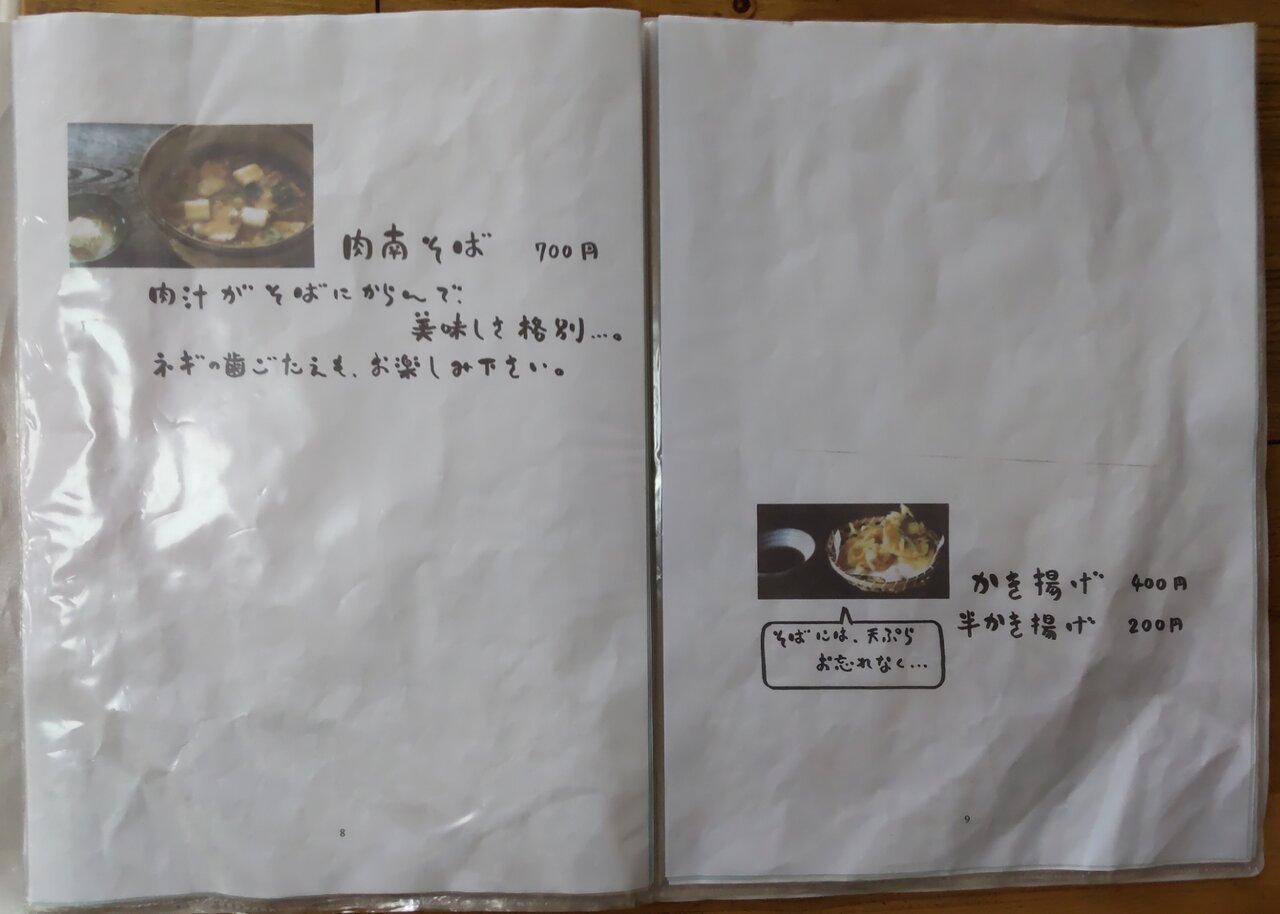 肉南そば 700円
肉汁がそばにからんで、
美味しさ格別…。
ネギの歯ごたえも、お楽しみ下さい。
8
かき揚げ 400円
半かき揚げ 200円
そばには、天ぷら
お忘れなく…
9